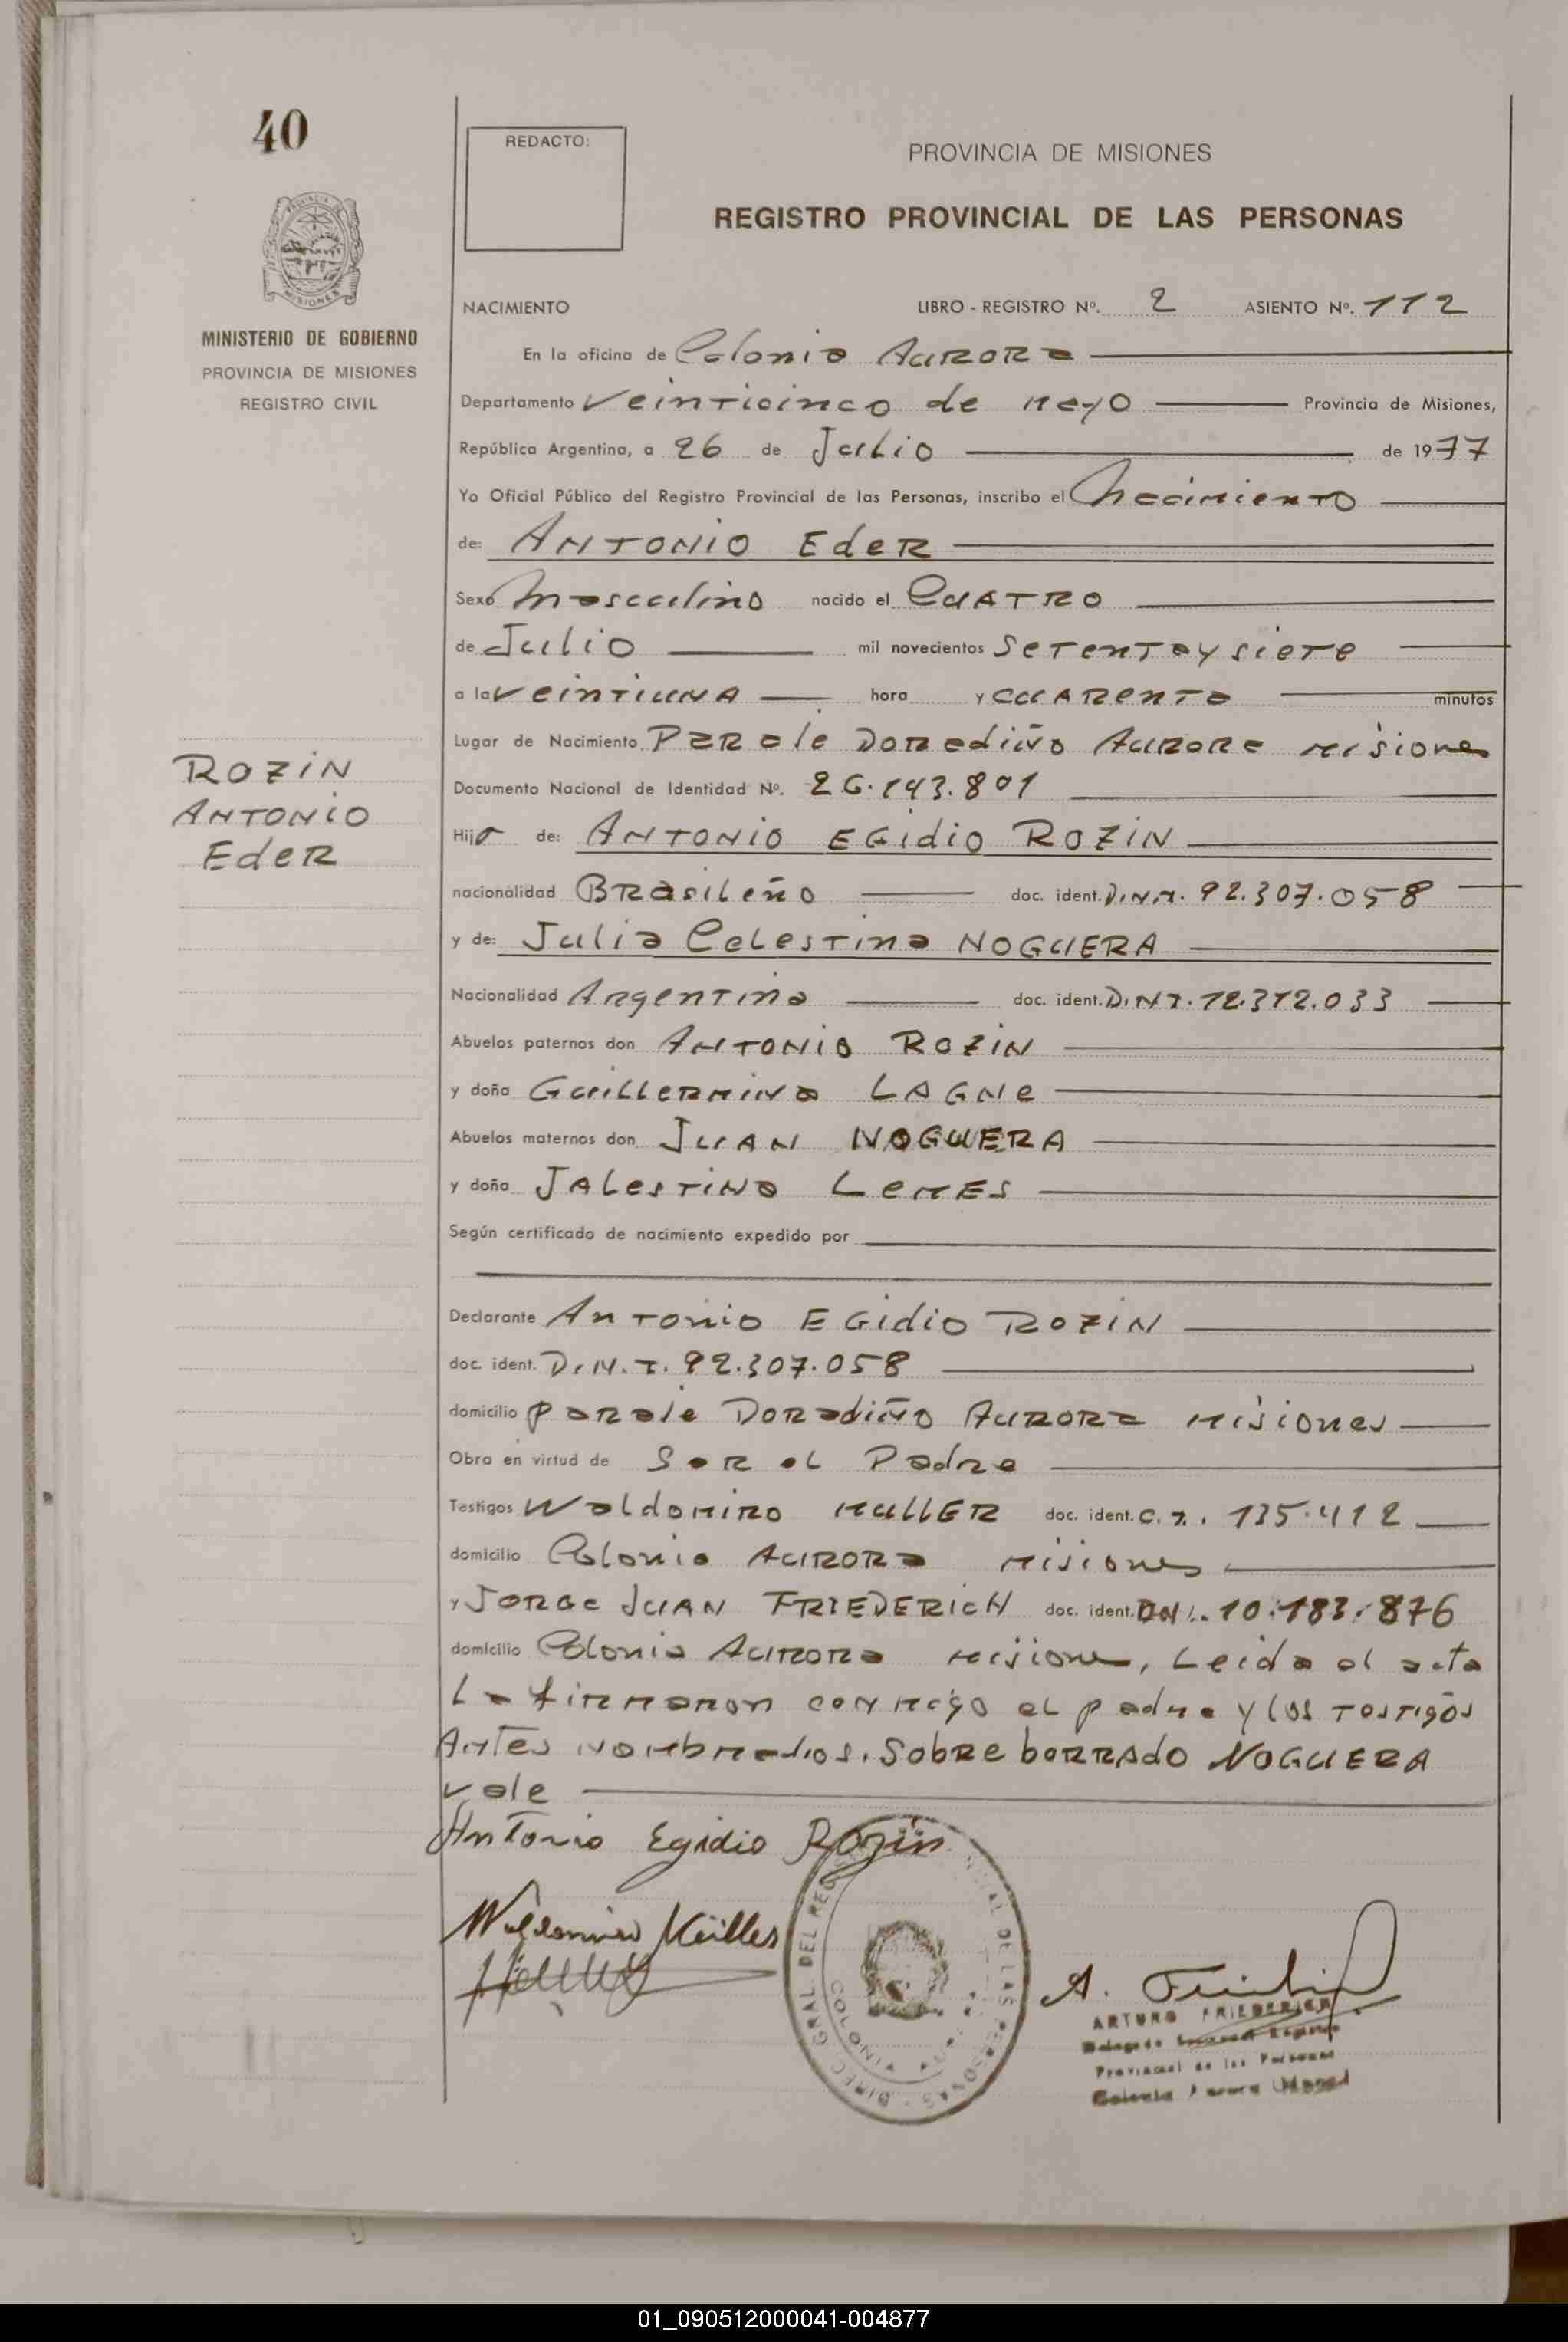 40
REDACTO:
PROVINCIA DE MISIONES
REGISTRO PROVINCIAL DE LAS PERSONAS
MINISTERIO DE GOBIERNO
PROVINCIA DE MISIONES
REGISTRO CIVIL
NACIMIENTO LIBRO - REGISTRO Nº. 2 ASIENTO Nº. 112
En la oficina de Colonia Aurora
Departamento Veinticinco de mayo Provincia de Misiones,
República Argentina, a 26 de Julio de 1977
Yo Oficial Público del Registro Provincial de las Personas, inscribo el Nacimiento
de: ANTONIO Eder
Sexo Masculino nacido el CUATRO
de Julio mil novecientos Setenta y siete
a la veintiuna hora y cuarenta minutos
Lugar de Nacimiento Paraje Doradiño Aurora Misiones
ROZIN
ANTONIO
Eder
Documento Nacional de Identidad Nº. 26.193.801
Hijo de: ANTONIO EGidio ROZIN
nacionalidad Brasileño doc. ident. D.N.I. 92.307.058
y de: Julia Celestina NOGUERA
Nacionalidad Argentina doc. ident. D.N.I. 12.312.033
Abuelos paternos don ANTONIO ROZIN
y doña Guillermina LAGNe
Abuelos maternos don JUAN NOGUERA
y doña JALestina LeMES
Según certificado de nacimiento expedido por
Declarante Antonio EGidio ROZIN
doc. ident. D.N.I. 92.307.058
domicilio paraje Doradiño Aurora Misiones
Obra en virtud de Ser el Padre
Testigos Waldomiro MULLER doc. ident. C.I. 135.412
domicilio Colonia Aurora Misiones
y Jorge JUAN FRIEDERICH doc. ident. DNI. 10.183.876
domicilio Colonia Aurora Misiones, Leida el acta
La firmaron conmigo el padre y los testigos
Antes nombrados. Sobre borrado NOGUERA
vale
Antonio Egidio Rozin
ARTURO FRIEDERICH
Provincial de las Personas
01_090512000041-004877